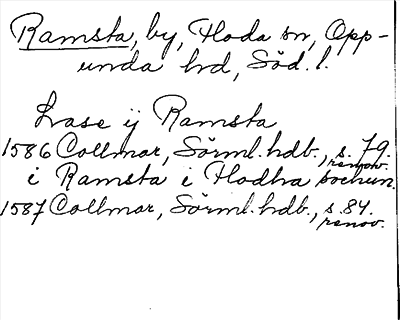 Ramsta, by, Floda sn, Opp-
unda hd, Söd. l.
Lasse ij Ramsta
1586 Collmar, Sörml. hdb., s. 79.
renov.
i Ramsta i Flodha sochun.
1587 Collmar, Sörml. hdb., s. 84.
renov.